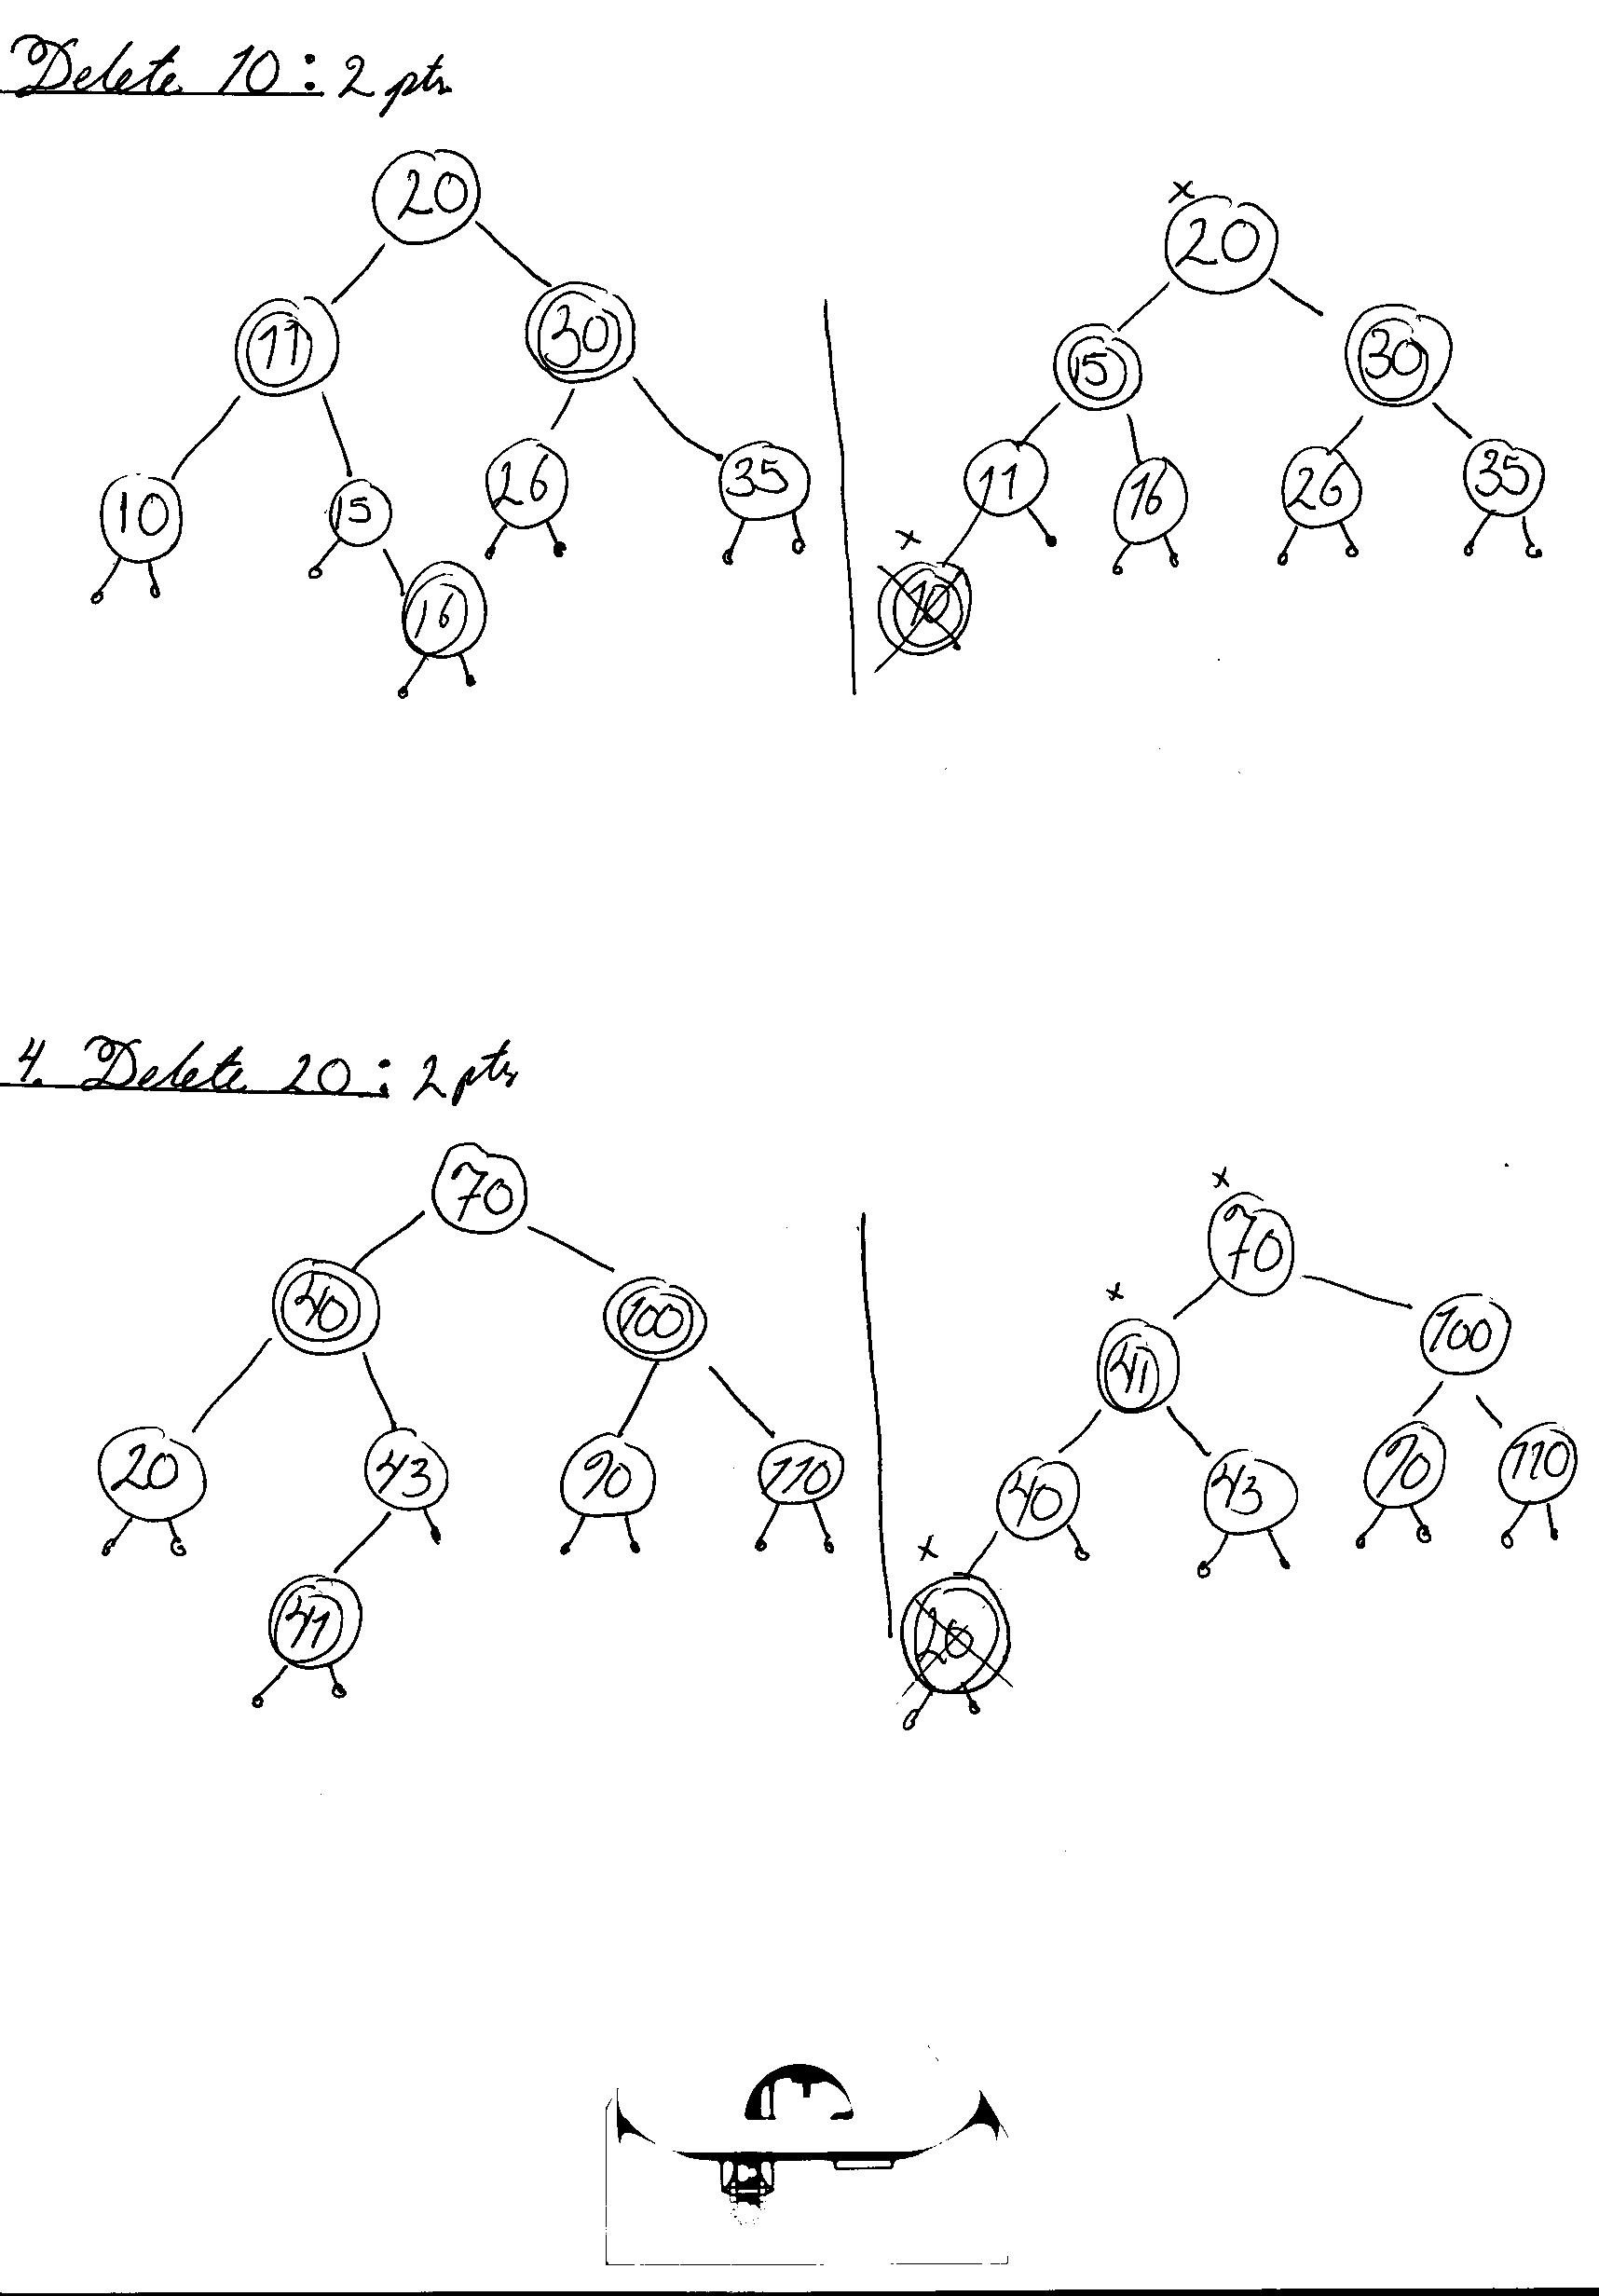 Delete 10: 2 pts
20
11 30
10 15 26 35
16
x
20
15 30
11 16 26 35
x
10
4. Delete 20: 2 pts
70
40 100
20 43 90 110
41
x
70
x
41 100
40 43 90 110
x
20